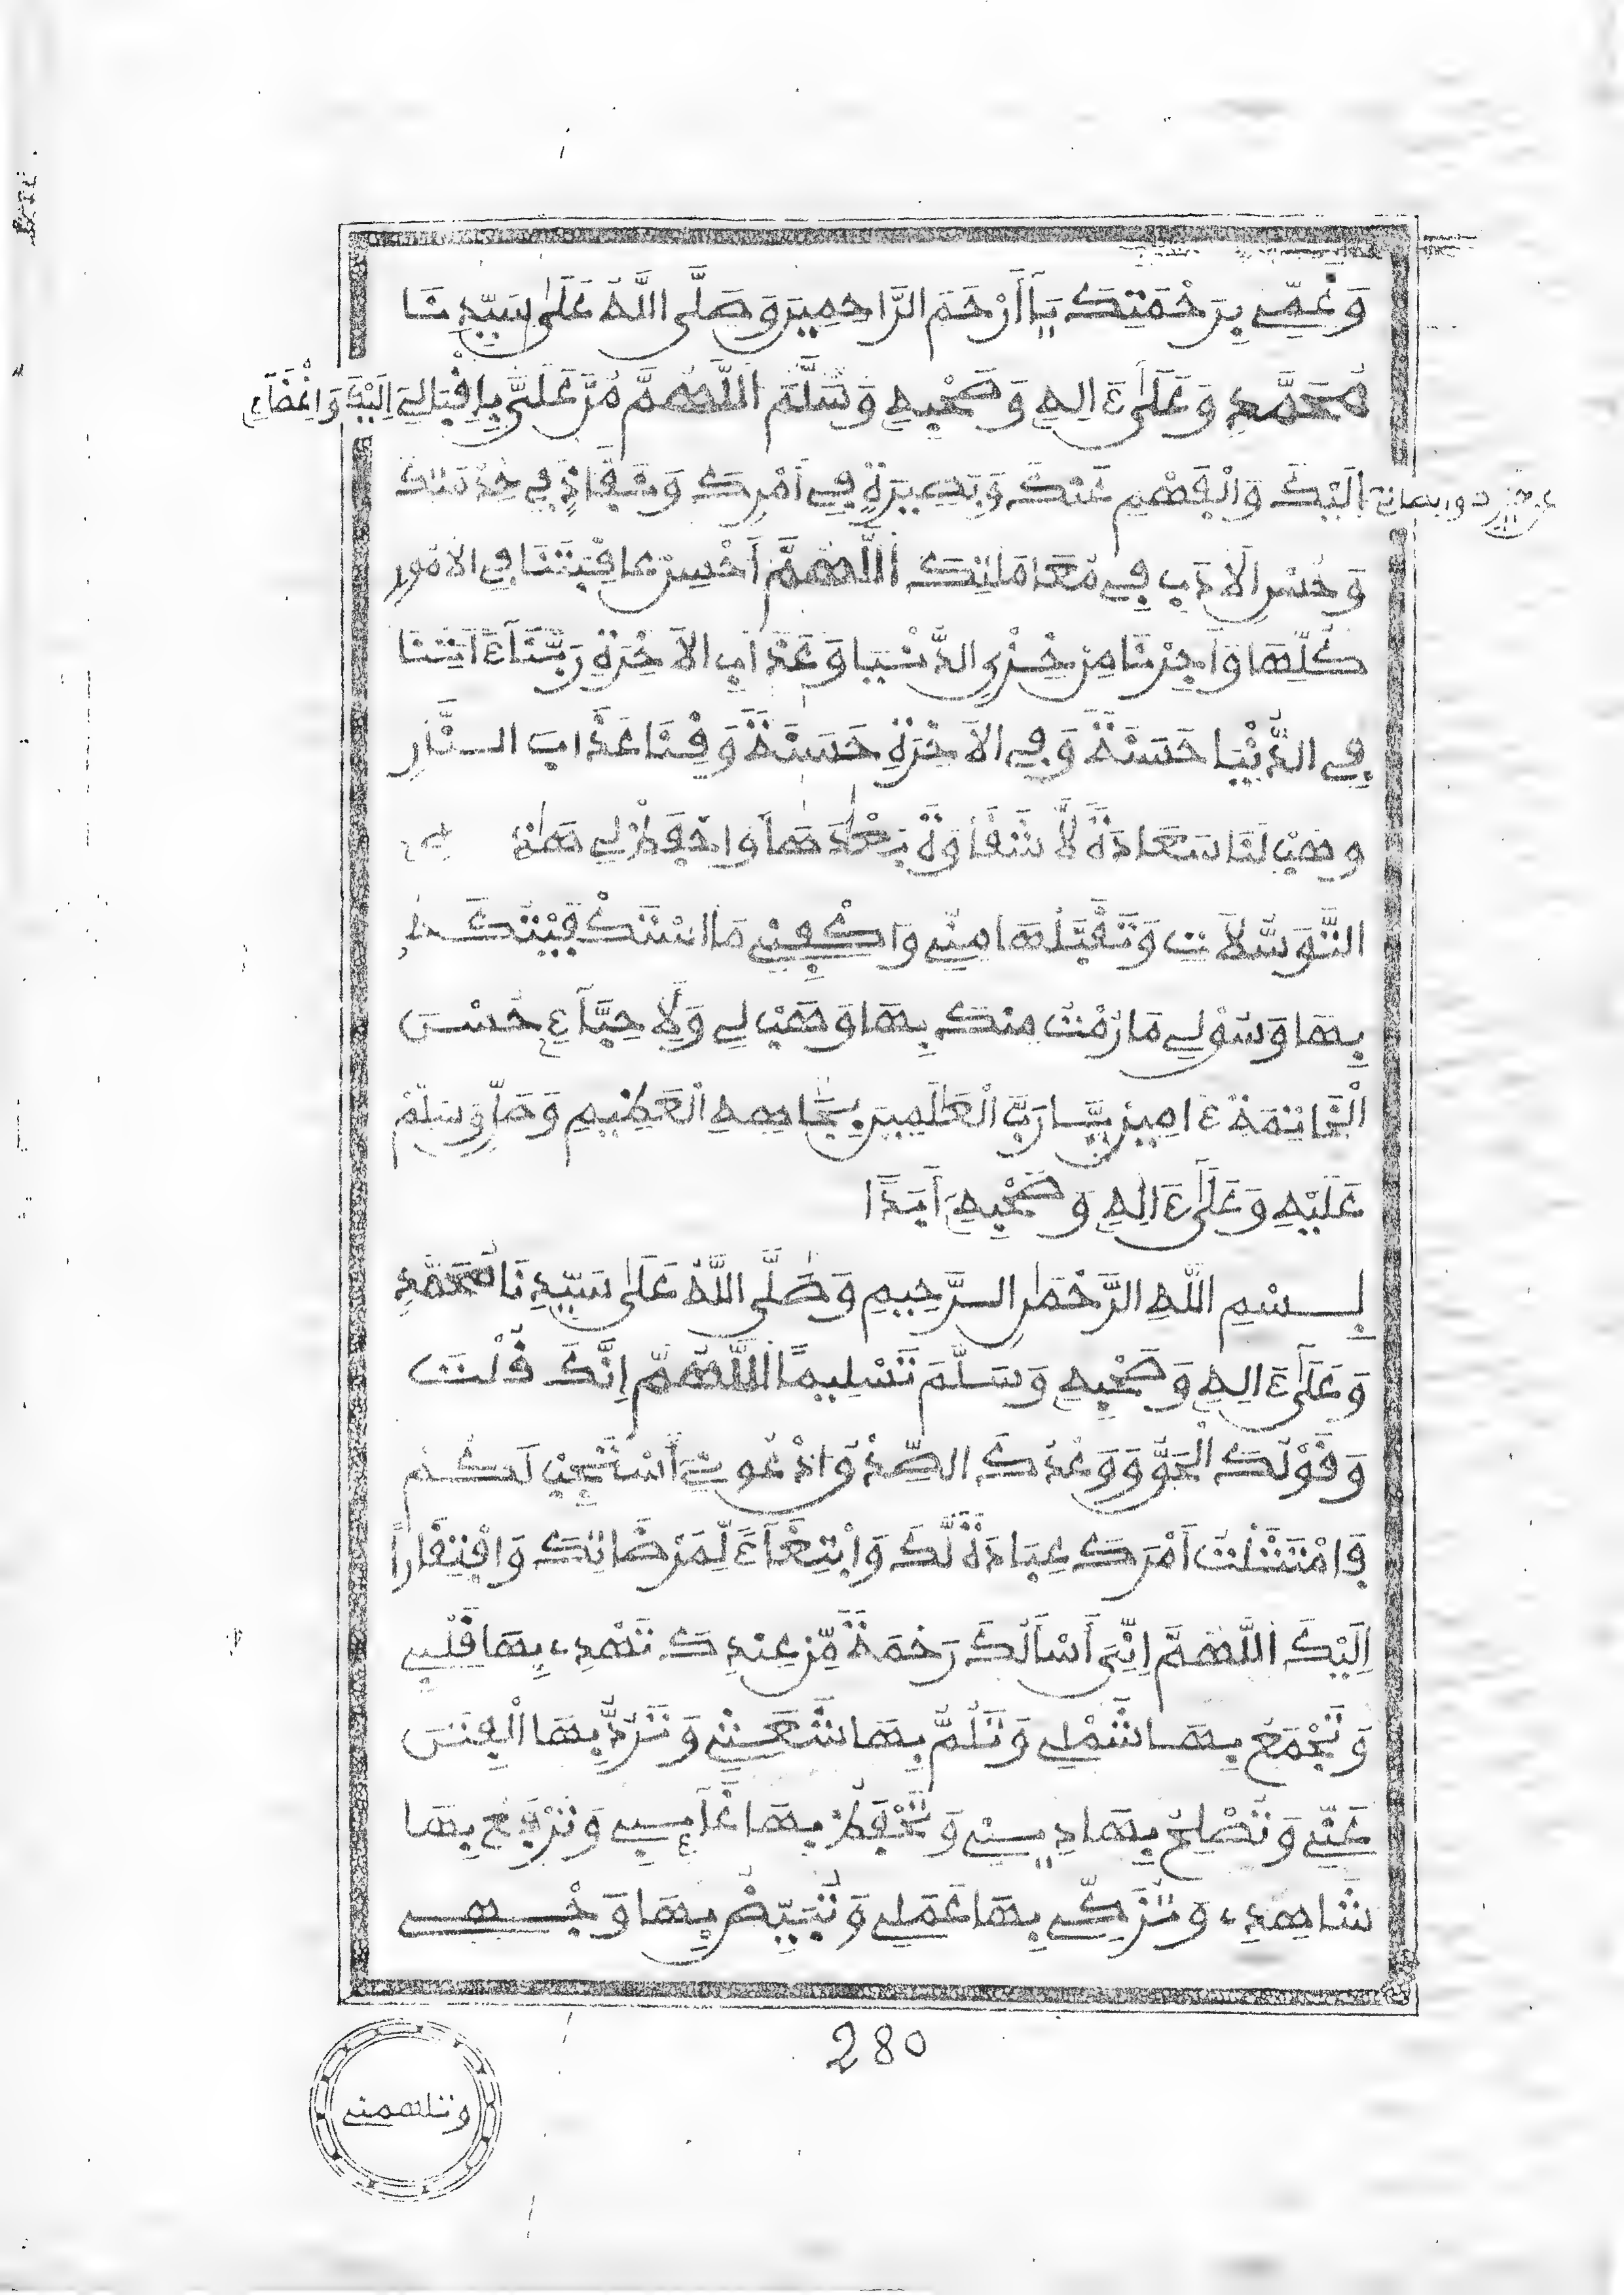 وَغَمِّي بِرَحْمَتِكَ يَا أَرْحَمَ الرَّاحِمِينَ وَصَلَّى اللَّهُ عَلَى سَيِّدِنَا
مُحَمَّدٍ وَعَلَى ءَالِهِ وَصَحْبِهِ وَسَلَّمَ اللَّهُمَّ مُنَّ عَلَيَّ بِإِقْبَالِي إِلَيْكَ وَإِصْغَاءِ
إِلَيْكَ وَالْفَهْمِ عَنْكَ وَبَصِيرَةٍ فِي أَمْرِكَ وَنَفَاذٍ فِي خِدْمَتِكَ
وَحُسْنِ الْأَدَبِ فِي مُعَامَلَتِكَ اللَّهُمَّ أَحْسِنْ عَاقِبَتَنَا فِي الْأُمُورِ
كُلِّهَا وَأَجِرْنَا مِنْ خِزْيِ الدُّنْيَا وَعَذَابِ الْآخِرَةِ رَبَّنَا ءَاتِنَا
فِي الدُّنْيَا حَسَنَةً وَفِي الْآخِرَةِ حَسَنَةً وَقِنَا عَذَابَ النَّارِ
وهَبْ لَنَا سَعَادَةً لَّا شَقَاوَةَ بَعْدَهَا وَاحْفَظْ لِي هَذِهِ
التَّوَسُّلَاتِ وَتَقَبَّلْهَا مِنِّي وَاكْفِنِي مَا اسْتَكْفَيْتُكَهُ
بِهَا وَسَوِّ لِي مَا رُمْتُ مِنْكَ بِهَا وَهَبْ لِي وَلِأَحِبَّاءِ حُسْنَ
الْخَاتِمَةِ ءَامِينَ يَا رَبَّ الْعَالَمِينَ بِجَاهِهِ الْعَظِيمِ وَصَلِّ وَسَلِّمْ
عَلَيْهِ وَعَلَى ءَالِهِ وَصَحْبِهِ أَبَدًا
بِسْمِ اللَّهِ الرَّحْمَنِ الرَّحِيمِ وَصَلَّى اللَّهُ عَلَى سَيِّدِنَا مُحَمَّدٍ
وَعَلَى ءَالِهِ وَصَحْبِهِ وَسَلَّمَ تَسْلِيمًا اللَّهُمَّ إِنَّكَ قُلْتَ
وَقَوْلُكَ الْحَقُّ وَوَعْدُكَ الصِّدْقُ ادْعُونِي أَسْتَجِبْ لَكُمْ
فَامْتَثَلْتُ أَمْرَكَ عِبَادَةً لَّكَ وَابْتِغَاءً لِّمَرْضَاتِكَ وَافْتِقَارًا
إِلَيْكَ اللَّهُمَّ إِنِّي أَسْأَلُكَ رَحْمَةً مِّنْ عِنْدِكَ تَهْدِي بِهَا قَلْبِي
وَتَجْمَعُ بِهَا شَمْلِي وَتَلُمُّ بِهَا شَعَثِي وَتَرُدُّ بِهَا الْفِتَنَ
عَنِّي وَتُصْلِحُ بِهَا دِينِي وَتَحْفَظُ بِهَا غَائِبِي وَتَرْفَعُ بِهَا
شَاهِدِي وَتُزَكِّي بِهَا عَمَلِي وَتُبَيِّضُ بِهَا وَجْهِي
280
وتلهمني